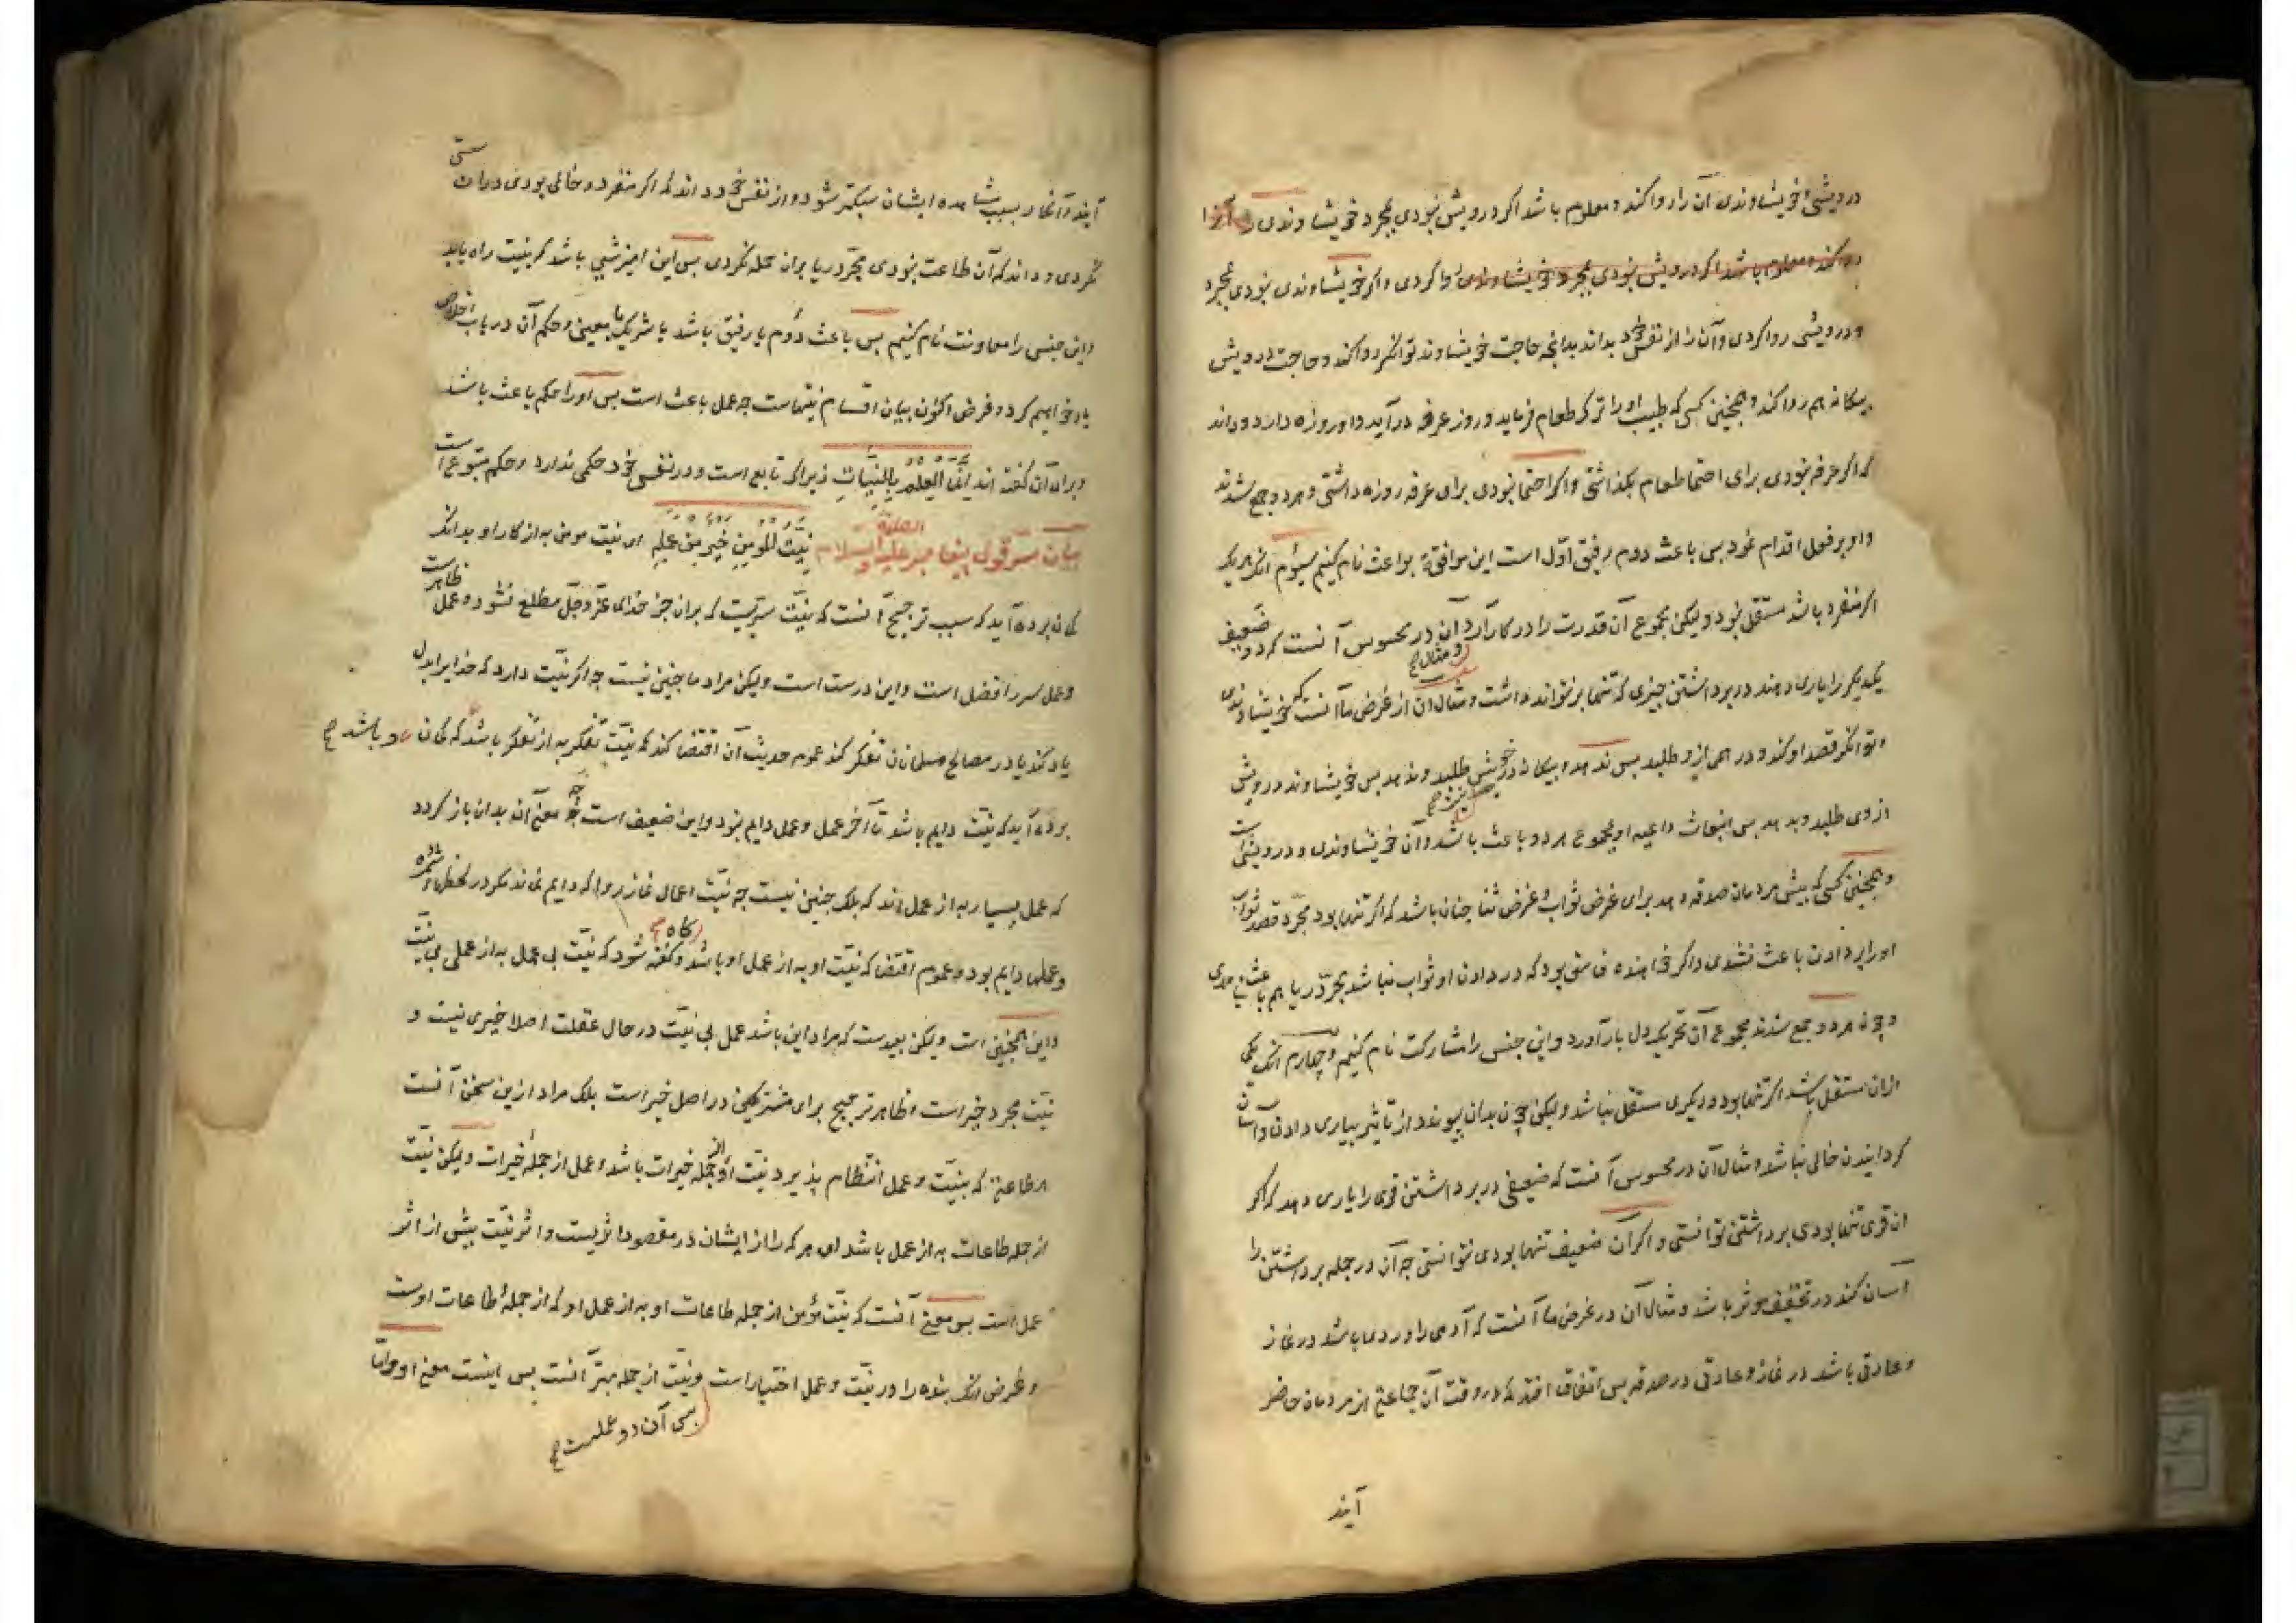 درویشی و خویشاوندی آن را روا کند و معلوم باشد اکر درویش نبودی بمجرد خویشاوندی آنرا
روا کند و معلوم باشد اکر درویش نبودی بمجرد خویشاوندی روا کردی و اکر خویشاوندی نبودی بمجرد
درویشی روا کردی و آن را از نفس خود بداند بدانچه حاجت خویشاوند توانکر روا کند و حاجت درویش
بیکانه هم روا کند و همچنین کسی که طبیب او را ترک طعام فرماید و روز عرفه درآید و او روزه دارد و داند
که اکر عرفه نبودی برای احتما طعام بکذاشتی و اکر احتما نبودی برای عرفه روزه داشتی و هر دو جمع شدند
و او بر فعل اقدام نمود پس باعث دوم رفیق اول است این موافقة بواعث نام کنیم سیوم آنکه هر یک
اکر منفرد باشد مستقل نبود و لیکن مجموع آن قدرت را در کار آرد و مثال آن در محسوس آنست که دو ضعیف
یکدیکر را یاری دهند در برداشتن چیزی که تنها بر نتوانند داشت و مثال آن از غرض ما آنست که خویشاوندی
توانکر قصد او کند و درهمی ازو طلبد پس ندهد و بیکانه درویش طلبد و ندهد پس خویشاوند درویش
از وی طلبد و بدهد پس انبعاث داعیه او بمجموع هر دو باعث باشد و آن خویشاوندی و درویشی است
و همچنین کسی که پیش مردمان صدقه دهد برای غرض ثواب و غرض ثنا چنان باشد که اکر تنها بود مجرد قصد ثواب
او را بر دادن باعث نشدی و اکر خواهنده فاسق بود که در دادن او ثواب نباشد بمجرد ریا هم باعث نیامدی
و چون هر دو جمع شدند مجموع آن تحریک دل بار آورد و این جنس را مشارکت نام کنیم و چهارم آنکه یکی
ازان مستقل باشد اکر تنها بود و دیکری مستقل نباشد و لیکن چون بدان پیوندد از تاثیر بیاری دادن و آسان
کردانیدن خالی نباشد و مثال آن در محسوس آنست که ضعیفی در برداشتن قوی را یاری دهد که اکر
ان قوی تنها بودی برداشتن توانستی و اکر آن ضعیف تنها بودی نتوانستی چه آن در جمله برداشتن را
آسان کند در تخفیف موثر باشد و مثال آن در غرض ما آنست که آدمی را وردها باشد در نماز
و عادتی باشد در نماز و عادتی در صدقه پس اتفاق افتد که در وقت آن جماعتی از مردمان حاضر
آیند
آیند و آنکار بسبب مشاهده ایشان سبکتر شود و از نفس خود داند که اکر منفرد و خالی بودی دران سستی
نکردی و داند که آن طاعت نبودی مجرد ریا بران حمله نکردی پس این امیزشی باشد که بنیت راه یابد
و این جنس را معاونت نام کنیم پس باعث دوم یا رفیق باشد یا شریک یا معین و حکم آن در باب اخلاص
یاد خواهیم کرد و غرض اکنون بیان اقسام نیتهاست چه عمل باعث است پس او را حکم باعث باشد
و برای آن کفته اند انما العمل بالنیات زیرا که تابع است و در نفس خود حکمی ندارد و حکم متبوع است
بیان سر قول پیغامبر علیه الصلوة والسلام نیة المؤمن خیر من عمله ای نیت مومن به از کار او بدانک
کمان برده آید که سبب ترجیح آنست که نیت سریست که بران جز خدای عز و جل مطلع نشود و عمل ظاهرست
و عمل سر را فضل است و این درست است و لیکن مراد ما چنین نیست چه اکر نیت دارد که خدایرا بدل
یاد کند یا در مصالح مسلمانان تفکر کند عموم حدیث آن اقتضا کند که نیت تفکر به از تفکر باشد که کمان
برده آید که نیت دایم باشد تا آخر عمل و عمل دایم نبود و این ضعیف است چه معنی آن بدان باز کردد
که عمل بسیار به از عمل اندک بلکه چنین نیست چه نیت اعمال نماز روا که دایم نماند مکر در لحظهاء شمرده
و عملها دایم بود و عموم اقتضا که نیت او به از عمل او باشد و کفته شود که نیت بی عمل به از عملی بی نیت
و این همچنین است و لیکن بعیدست که مراد این باشد عمل بی نیت در حال غفلت اصلا خیری نیست و
نیت مجرد خیر است و ظاهر ترجیح برای مشترکین در اصل خیر است بلکه مراد ازین سخن آنست
هر طاعتی که بنیت و عمل انتظام پذیرد نیت او از جمله خیرات باشد و عمل از جمله خیرات و لیکن نیت
از جمله طاعات به از عمل باشد ای هر که را از ایشان در مقصود اثریست و اثر نیت بیش از اثر
عمل است پس معنی آنست که نیت مؤمن از جمله طاعات او به از عمل او که از جمله طاعات اوست
و غرض آنکه بنده را در نیت و عمل اختیار است و نیت از جمله بهتر آنست پس اینست معنی او و اما
پس آن دو عملست